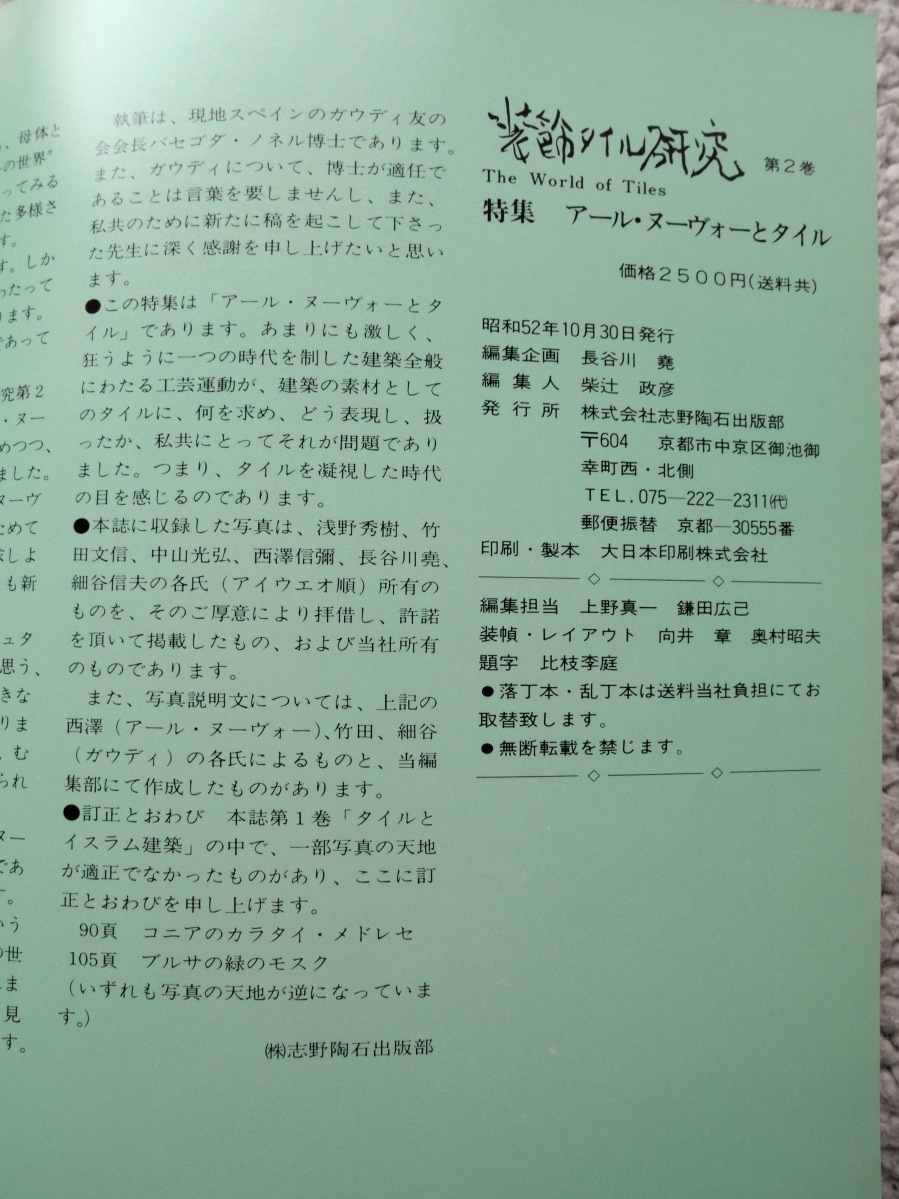 、母体と
の世界”
ってみる
た多様さ
す。
す。しか
わたって
ります。
であって
究第2
・ヌー
めつつ、
ました。
ヌーヴ
ためて
家しよ
も新
ュタ
思う、
きな
りま
、む
られ
ヌー
であ
す。
いう
の世
れま
見
す。
執筆は、現地スペインのガウディ友の
会会長バセゴダ・ノネル博士であります。
また、ガウディについて、博士が適任で
あることは言葉を要しませんし、また、
私共のために新たに稿を起こして下さっ
た先生に深く感謝を申し上げたいと思い
ます。
●この特集は「アール・ヌーヴォーとタ
イル」であります。あまりにも激しく、
狂うように一つの時代を制した建築全般
にわたる工芸運動が、建築の素材として
のタイルに、何を求め、どう表現し、扱
ったか、私共にとってそれが問題であり
ました。つまり、タイルを凝視した時代
の目を感じるのであります。
●本誌に収録した写真は、浅野秀樹、竹
田文信、中山光弘、西澤信彌、長谷川堯、
細谷信夫の各氏（アイウエオ順）所有の
ものを、そのご厚意により拝借し、許諾
を頂いて掲載したもの、および当社所有
のものであります。
また、写真説明文については、上記の
西澤（アール・ヌーヴォー）、竹田、細谷
（ガウディ）の各氏によるものと、当編
集部にて作成したものがあります。
●訂正とおわび　本誌第1巻「タイルと
イスラム建築」の中で、一部写真の天地
が適正でなかったものがあり、ここに訂
正とおわびを申し上げます。
90頁　コニアのカラタイ・メドレセ
105頁　ブルサの緑のモスク
（いずれも写真の天地が逆になっていま
す。）
㈱志野陶石出版部
装飾タイル研究　第2巻
The World of Tiles
特集　アール・ヌーヴォーとタイル
価格2500円（送料共）
昭和52年10月30日発行
編集企画　長谷川　堯
編集人　柴辻　政彦
発行所　株式会社志野陶石出版部
〒604　京都市中京区御池御
幸町西・北側
TEL.075—222—2311㈹
郵便振替　京都—30555番
印刷・製本　大日本印刷株式会社
編集担当　上野真一　鎌田広己
装幀・レイアウト　向井　章　奥村昭夫
題字　比枝李庭
●落丁本・乱丁本は送料当社負担にてお
取替致します。
●無断転載を禁じます。